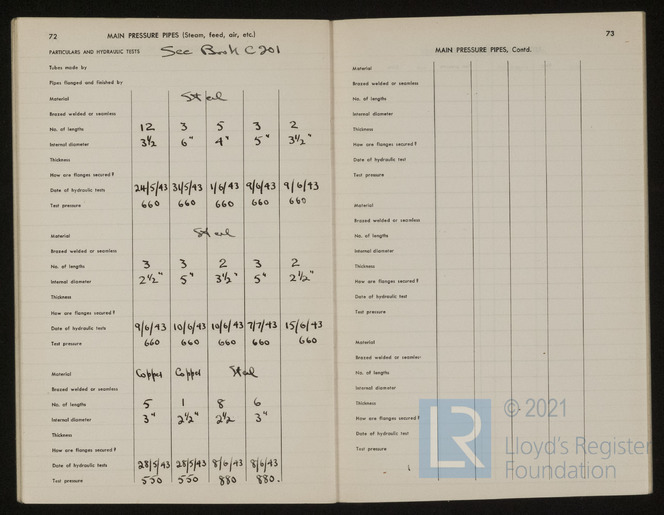 72 MAIN PRESSURE PIPES (Steam, feed, air, etc.)
PARTICULARS AND HYDRAULIC TESTS See Book C 201
Tubes made by
Pipes flanged and finished by
Material Steel
Brazed welded or seamless
No. of lengths 12 3 5 3 2
Internal diameter 3½ 6" 4" 5" 3½"
Thickness
How are flanges secured?
Date of hydraulic tests 24/5/43 31/5/43 1/6/43 9/6/43 9/6/43
Test pressure 660 660 660 660 660
Material Steel
Brazed welded or seamless
No. of lengths 3 3 2 3 2
Internal diameter 2½" 5" 3½" 5" 2½"
Thickness
How are flanges secured?
Date of hydraulic tests 9/6/43 10/6/43 10/6/43 7/7/43 15/6/43
Test pressure 660 660 660 660 660
Material Copper Copper Steel
Brazed welded or seamless
No. of lengths 5 1 8 6
Internal diameter 3" 2½" 2½ 3"
Thickness
How are flanges secured?
Date of hydraulic tests 28/5/43 28/5/43 8/6/43 8/6/43
Test pressure 550 550 880 880.
73
MAIN PRESSURE PIPES, Contd.
Material
Brazed welded or seamless
No. of lengths
Internal diameter
Thickness
How are flanges secured?
Date of hydraulic test
Test pressure
Material
Brazed welded or seamless
No. of lengths
Internal diameter
Thickness
How are flanges secured?
Date of hydraulic test
Test pressure
Material
Brazed welded or seamless
No. of lengths
Internal diameter
Thickness
How are flanges secured?
Date of hydraulic test
Test pressure
LR
© 2021
Lloyd's Register
Foundation